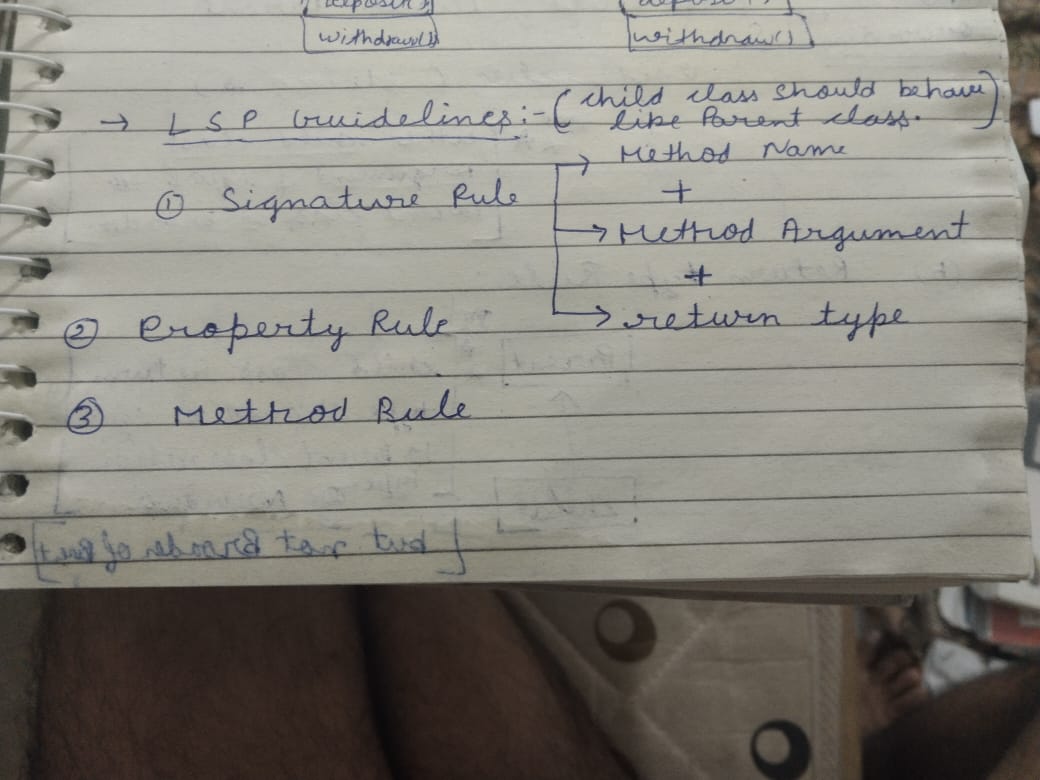 deposit() deposit()
withdraw() withdraw()
→ LSP Guidelines:- (child class should behave
like Parent class.)
① Signature Rule → Method Name
+
→ Method Argument
+
→ return type
② Property Rule
③ Method Rule